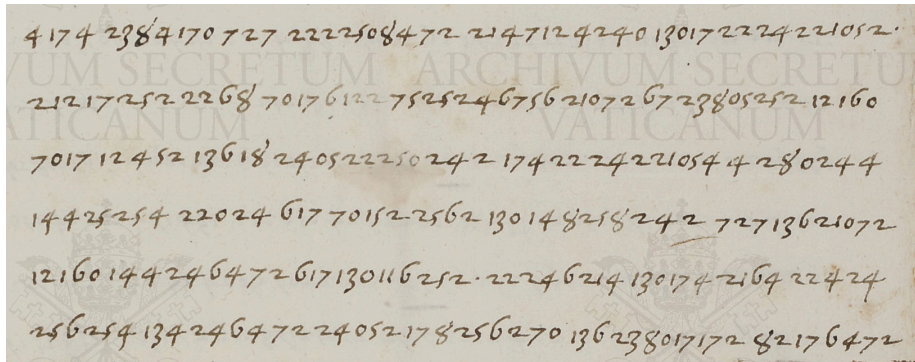 4174 2384170 727 22225084 72 214712424 0 13017222422 1052·
21217252 2268 7017612275252467562107267238052 52 12160
7017 12452 13618 24052225 0242 17422242210544 280244
14425254 22024 617 70152 2562 130148258242 7271362 1072
12160 144246472617130116252· 222462 14 130174 2164 22424
256254 134246472240 52 178256270 13623801717 2 82176472